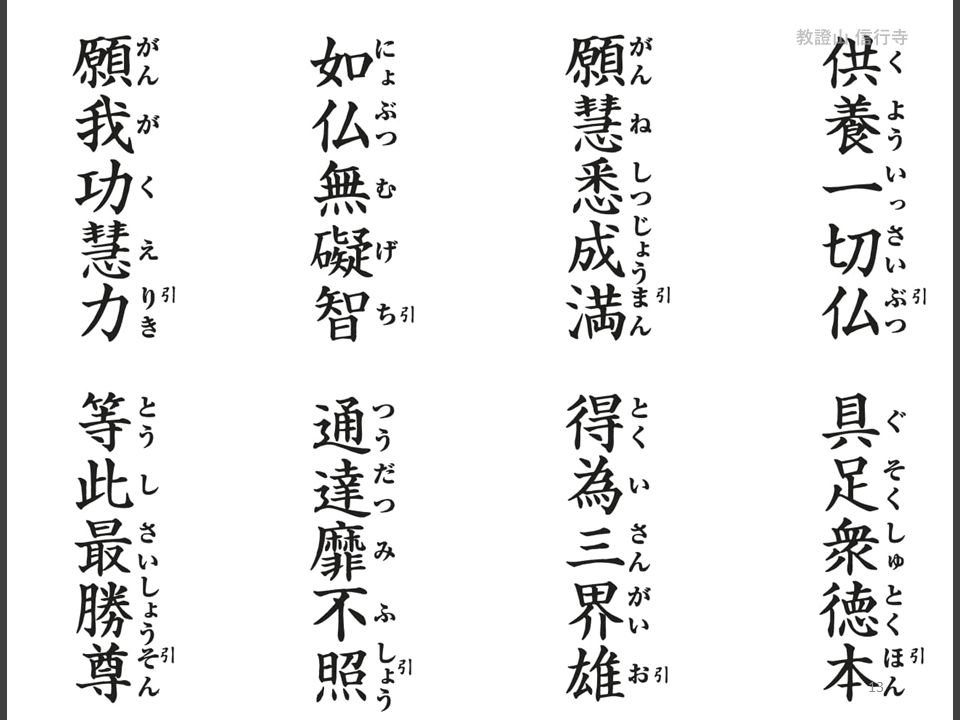 教證山 信行寺
供養一切仏
くよういっさいぶつ引
具足衆徳本
ぐそくしゅとくほん引
願慧悉成満
がんねしつじょうまん引
得為三界雄
とくいさんがいお引
如仏無礙智
にょぶつむげち引
通達靡不照
つうだつみふしょう引
願我功慧力
がんがくえりき引
等此最勝尊
とうしさいしょうそん引
13